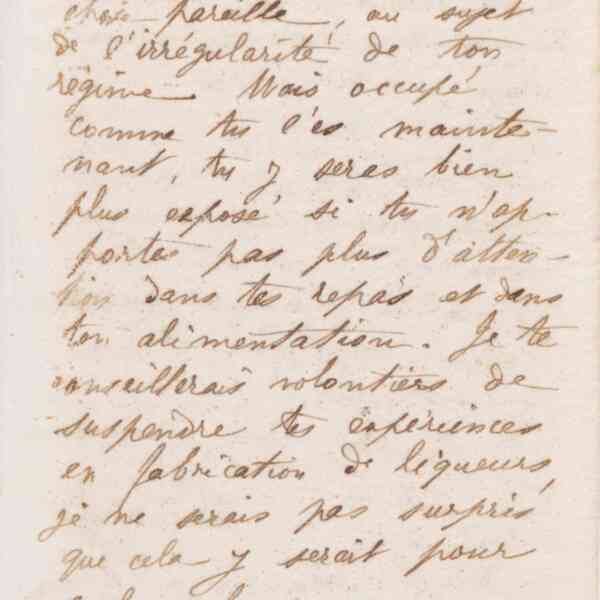 chose pareille, au sujet
de l'irrégularité de ton
régime. Mais occupé
comme tu l'es mainte-
nant, tu y seras bien
plus exposé si tu n'ap-
portes pas plus d'atten-
tion dans tes repas et dans
ton alimentation. Je te
conseillerais volontiers de
suspendre tes expériences
en fabrication de liqueurs,
je ne serais pas surpris
que cela y serait pour